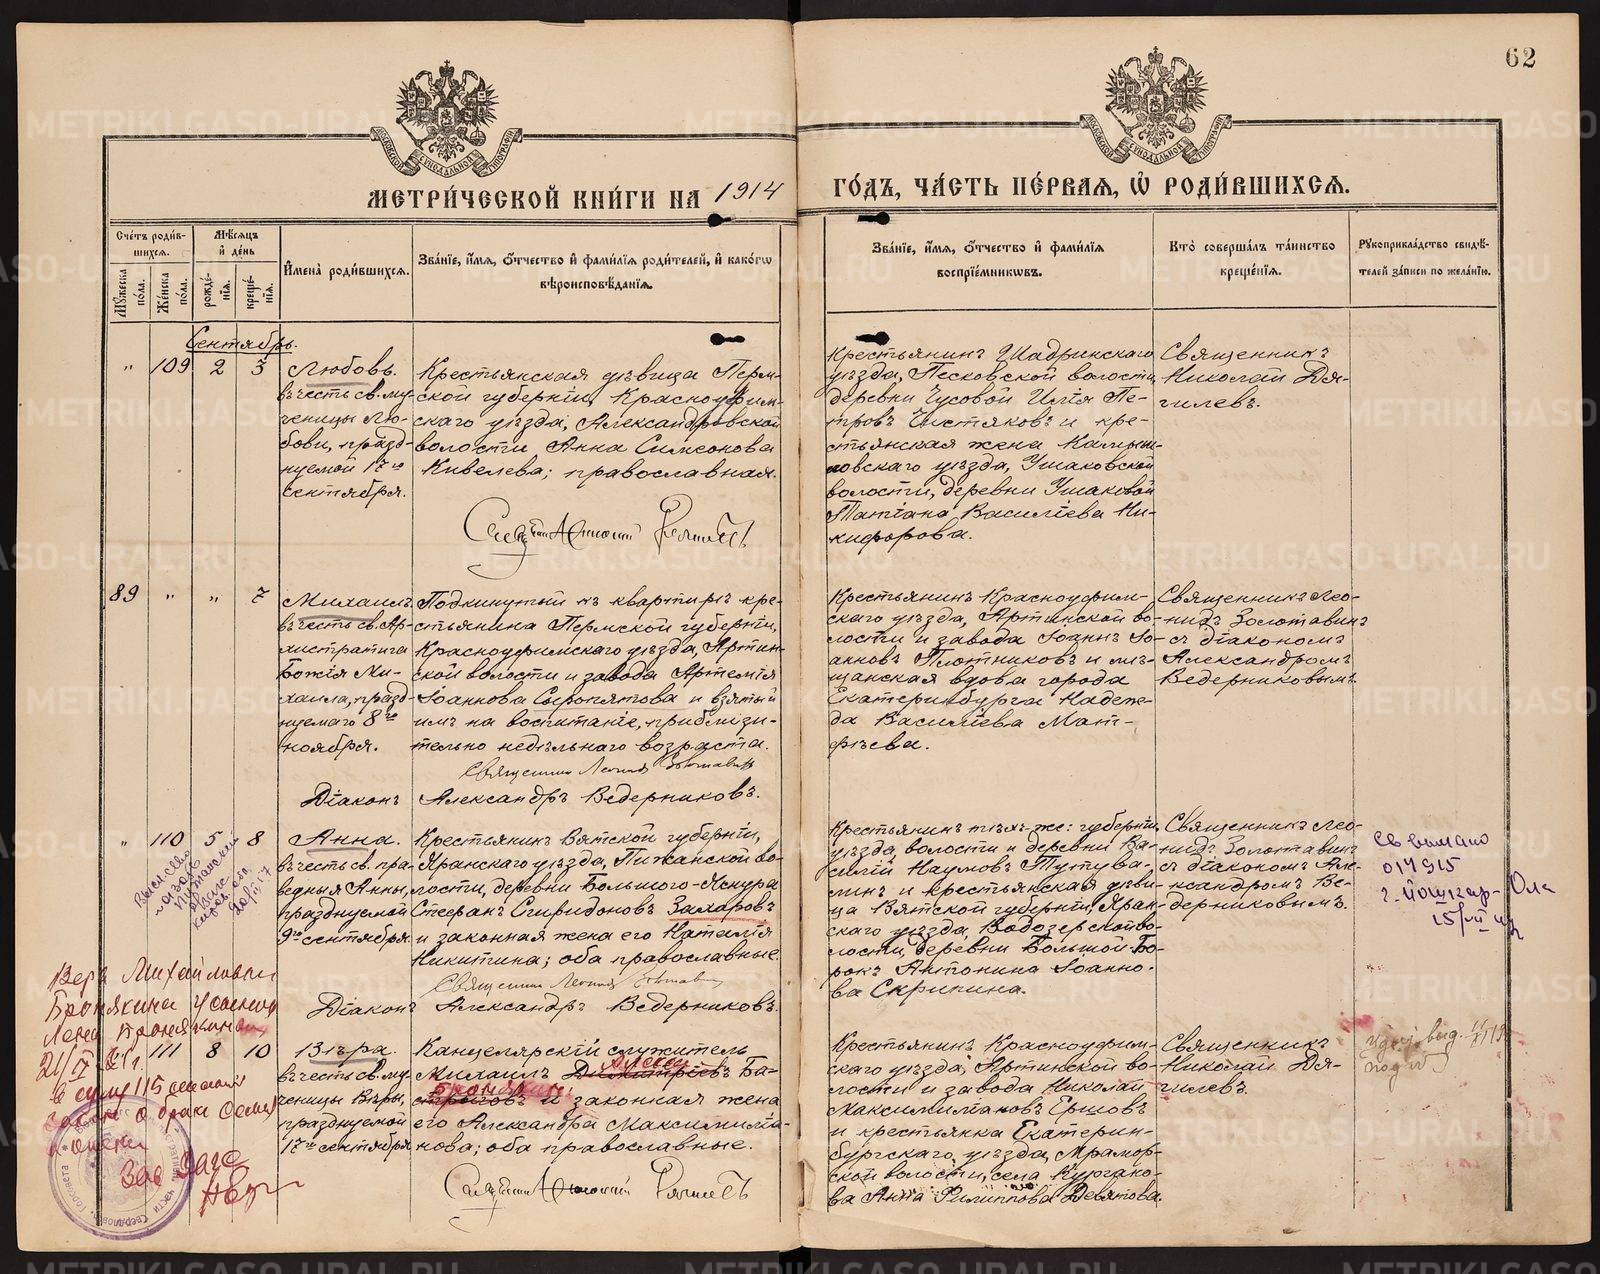 62
МЕТРИ́ЧЕСКОЙ КНИ́ГИ НА 1914
ГО́ДЪ, ЧА́СТЬ ПЕ́РВАѦ, Ѡ҆ РОДИ́ВШИХСѦ.
Сче́тъ роди́в-
шихсѧ.
Мꙋ́жеска
по́ла.
Же́нска
по́ла.
Мѣ́сѧцъ
и҆ де́нь
рожде́-
нїѧ.
креще́-
нїѧ.
И҆мена̀ роди́вшихсѧ.
Зва́нїе, и҆́мѧ, ѻ҆́тчество и҆ фами́лїѧ роди́телей, и҆ како́гѡ
вѣроисповѣ́данїѧ.
Зва́нїе, и҆́мѧ, ѻ҆́тчество и҆ фами́лїѧ
воспрїе́мникѡвъ.
Кто̀ соверша́лъ та́инство
креще́нїѧ.
Рꙋкоприкла́дство свидѣ́-
телей за́писи по жела́нїю.
Сентябрь.
" 109 2 3
Любовь.
въ честь св. му-
ченицы Лю-
бови, празд-
нуемой 17го
сентября.
Крестьянская дѣвица Перм-
ской губерніи, Красноуфим-
скаго уѣзда, Александровской
волости Анна Симеонова
Кивелева; православная.
Крестьянинъ Шадринскаго
уѣзда, Песковской волости,
деревни Чусовой Илія Пе-
тровъ Чистяковъ и кре-
стьянская жена Камыш-
ловскаго уѣзда, Ушаковской
волости, деревни Ушаковой
Татіана Василіева Ни-
кифорова.
Священникъ
Николай Дя-
гилевъ.
89 " " 7
Михаилъ
въ честь св. Ар-
хистратига
Божія Ми-
хаила, празд-
нуемаго 8го
ноября.
Подкинутый къ квартирѣ кре-
стьянина Пермской губерніи,
Красноуфимскаго уѣзда, Артин-
ской волости и завода Артемія
Іоаннова Сыропятова и взятый
имъ на воспитаніе, приблизи-
тельно недѣльнаго возраста.
Священникъ Леонидъ Золотавинъ
Діаконъ Александръ Ведерниковъ.
Крестьянинъ Красноуфим-
скаго уѣзда, Артинской во-
лости и завода Іоаннъ Іо-
анновъ Плотниковъ и мѣ-
щанская вдова города
Екатеринбурга Надеж-
да Василіева Мат-
фѣева.
Священникъ Лео-
нидъ Золотавинъ
съ діакономъ
Александромъ
Ведерниковымъ.
" 110 5 8
Анна.
въ честь св. пра-
ведныя Анны,
празднуемой
9го сентября.
Крестьянинъ Вятской губерніи,
Яранскаго уѣзда, Пижанской во-
лости, деревни Большого-Яснура
Стефанъ Спиридоновъ Захаровъ
и законная жена его Наталія
Никитина; оба православные.
Священникъ Леонидъ Золотавинъ
Діаконъ Александръ Ведерниковъ.
Крестьянинъ тѣхъ-же: губерніи,
уѣзда, волости и деревни Ва-
силій Наумовъ Тутува-
линъ и крестьянская дѣви-
ца Вятской губерніи, Яран-
скаго уѣзда, Водозерской во-
лости, деревни Большой-Бо-
рокъ Антонина Іоанно-
ва Скрипина.
Священникъ Лео-
нидъ Золотавинъ
съ діакономъ Але-
ксандромъ Ве-
дерниковымъ.
г. Йошкар-Ола
111 8 10
Вѣра.
въ честь св. му-
ченицы Вѣры,
празднуемой
17го сентября
Канцелярскій служитель
Михаилъ Димитріевъ Ба-
и законная жена
его Александра Максимиліа-
нова; оба православные.
Крестьянинъ Красноуфим-
скаго уѣзда, Артинской во-
лости и завода Николай
Максимиліановъ Ершовъ
и крестьянка Екатерин-
бургскаго уѣзда, Мрамор-
ской волости, села Кургано-
ва Анна Филиппова Девятова.
Священникъ
Николай Дя-
гилевъ.
METRIKI.GASO-URAL.RU